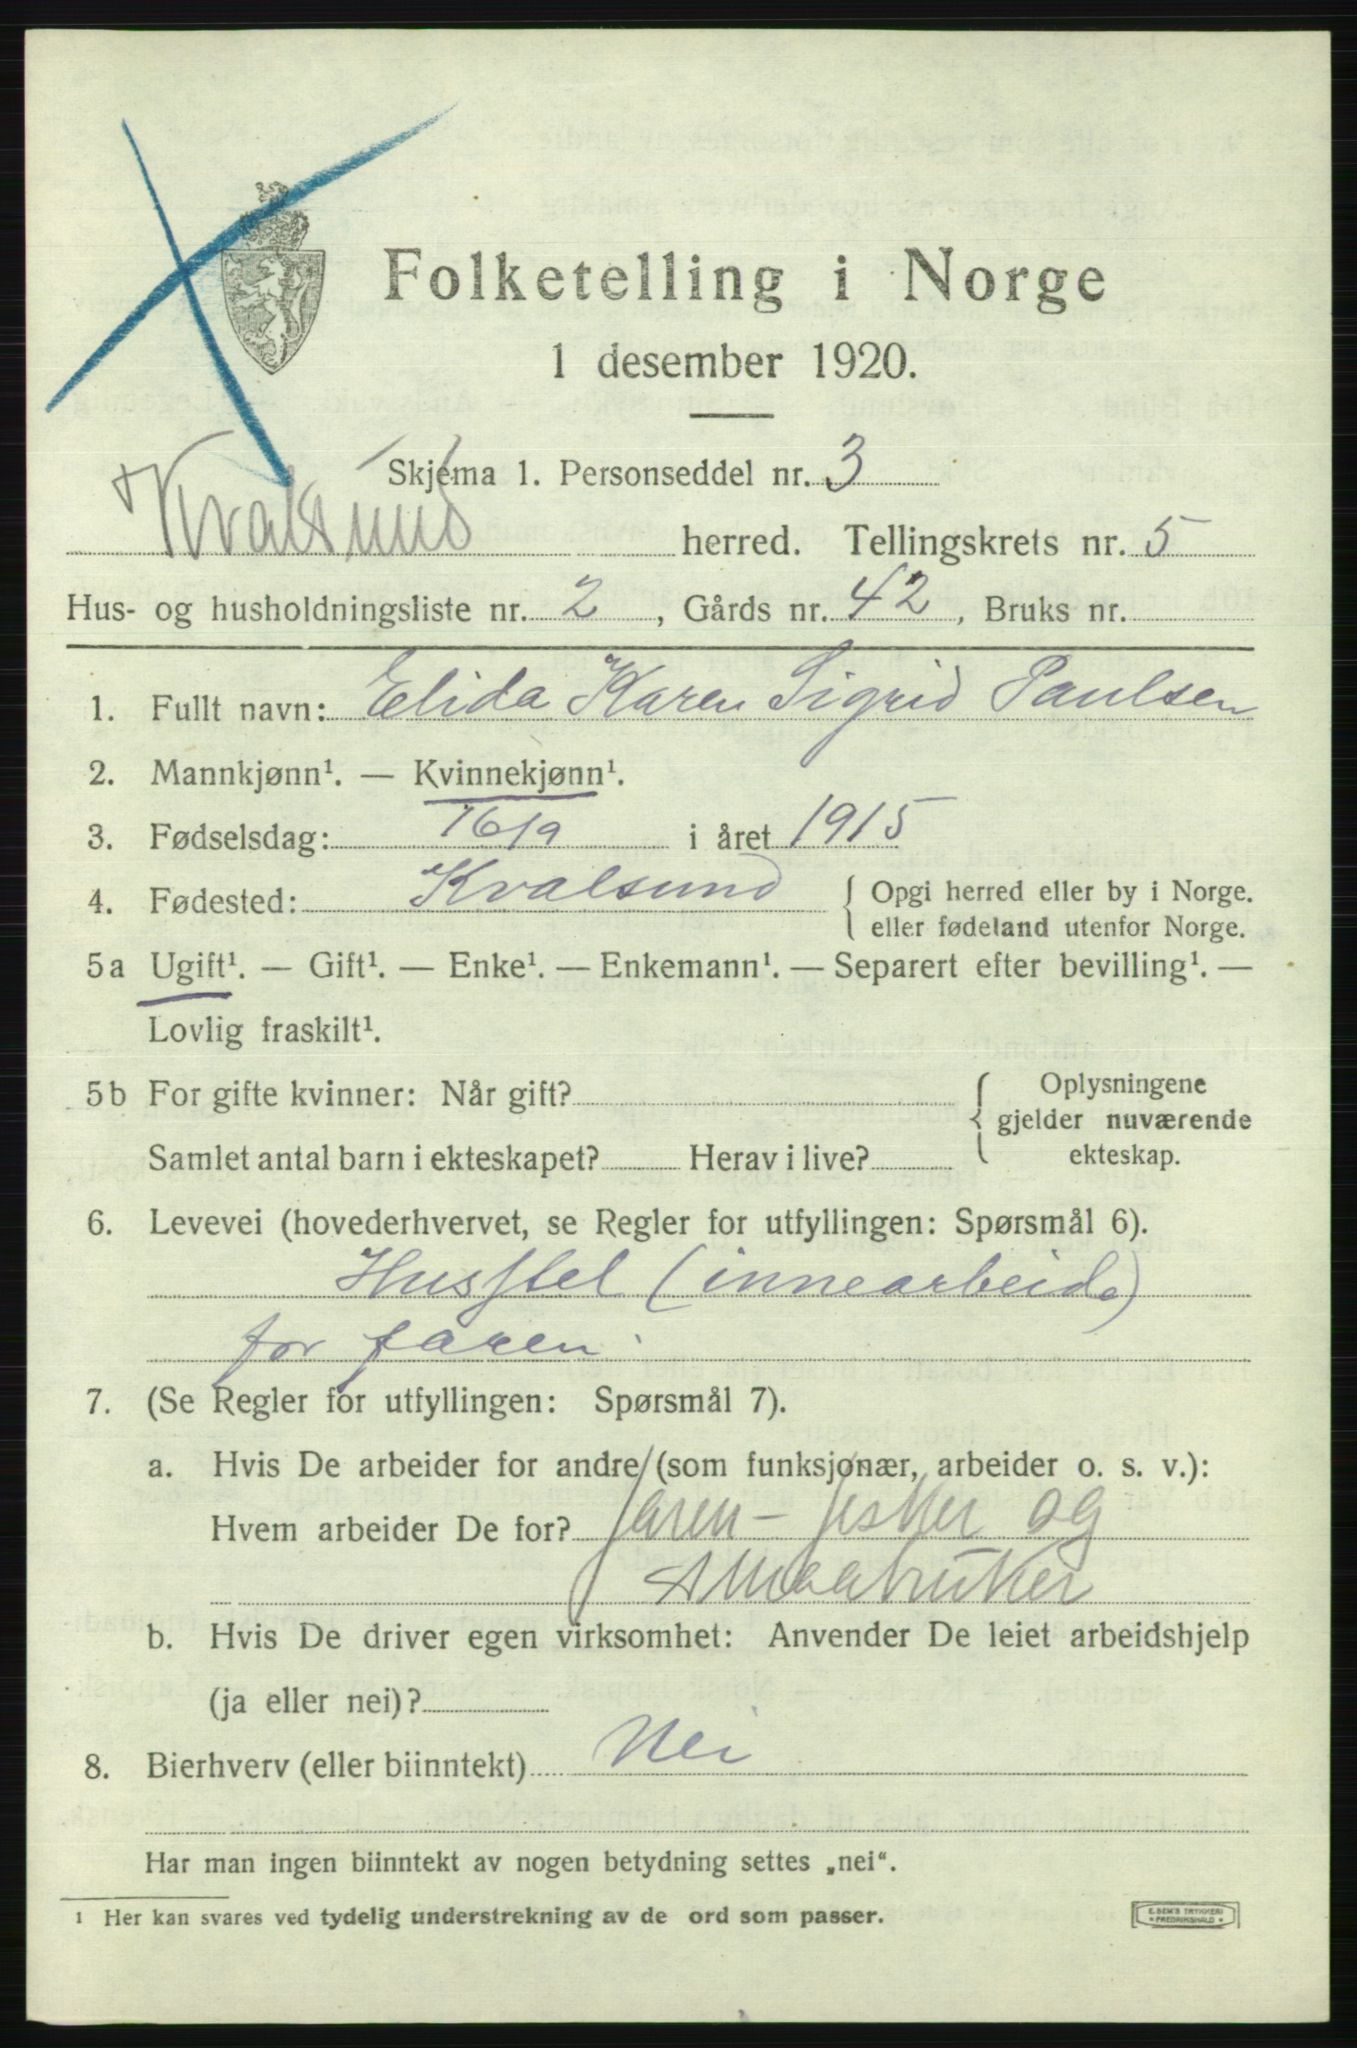 Folketelling i Norge
1 desember 1920.
Skjema 1. Personseddel nr. 3
Kvalsund herred. Tellingskrets nr. 5
Hus- og husholdningsliste nr. 2, Gårds nr. 42, Bruks nr.
1. Fullt navn: Elida Karen Sigrid Paulsen
2. Mannkjønn¹. — Kvinnekjønn¹.
3. Fødselsdag: 16/9 i året 1915
4. Fødested: Kvalsund { Opgi herred eller by i Norge.
eller fødeland utenfor Norge.
5a Ugift¹. — Gift¹. — Enke¹. — Enkemann¹. — Separert efter bevilling¹. —
Lovlig fraskilt¹.
5b For gifte kvinner: Når gift? { Oplysningene
gjelder nuværende
Samlet antal barn i ekteskapet? Herav i live? ekteskap.
6. Levevei (hovederhvervet, se Regler for utfyllingen: Spørsmål 6).
Husstel (innearbeide)
for faren.
7. (Se Regler for utfyllingen: Spørsmål 7).
a. Hvis De arbeider for andre (som funksjonær, arbeider o. s. v.):
Hvem arbeider De for? faren - fisker og
smaabruker
b. Hvis De driver egen virksomhet: Anvender De leiet arbeidshjelp
(ja eller nei)?
8. Bierhverv (eller biinntekt) Nei
Har man ingen biinntekt av nogen betydning settes „nei“.
¹ Her kan svares ved tydelig understrekning av de ord som passer.
E. SEM'S TRYKKERI
* FREDRIKSHALD *